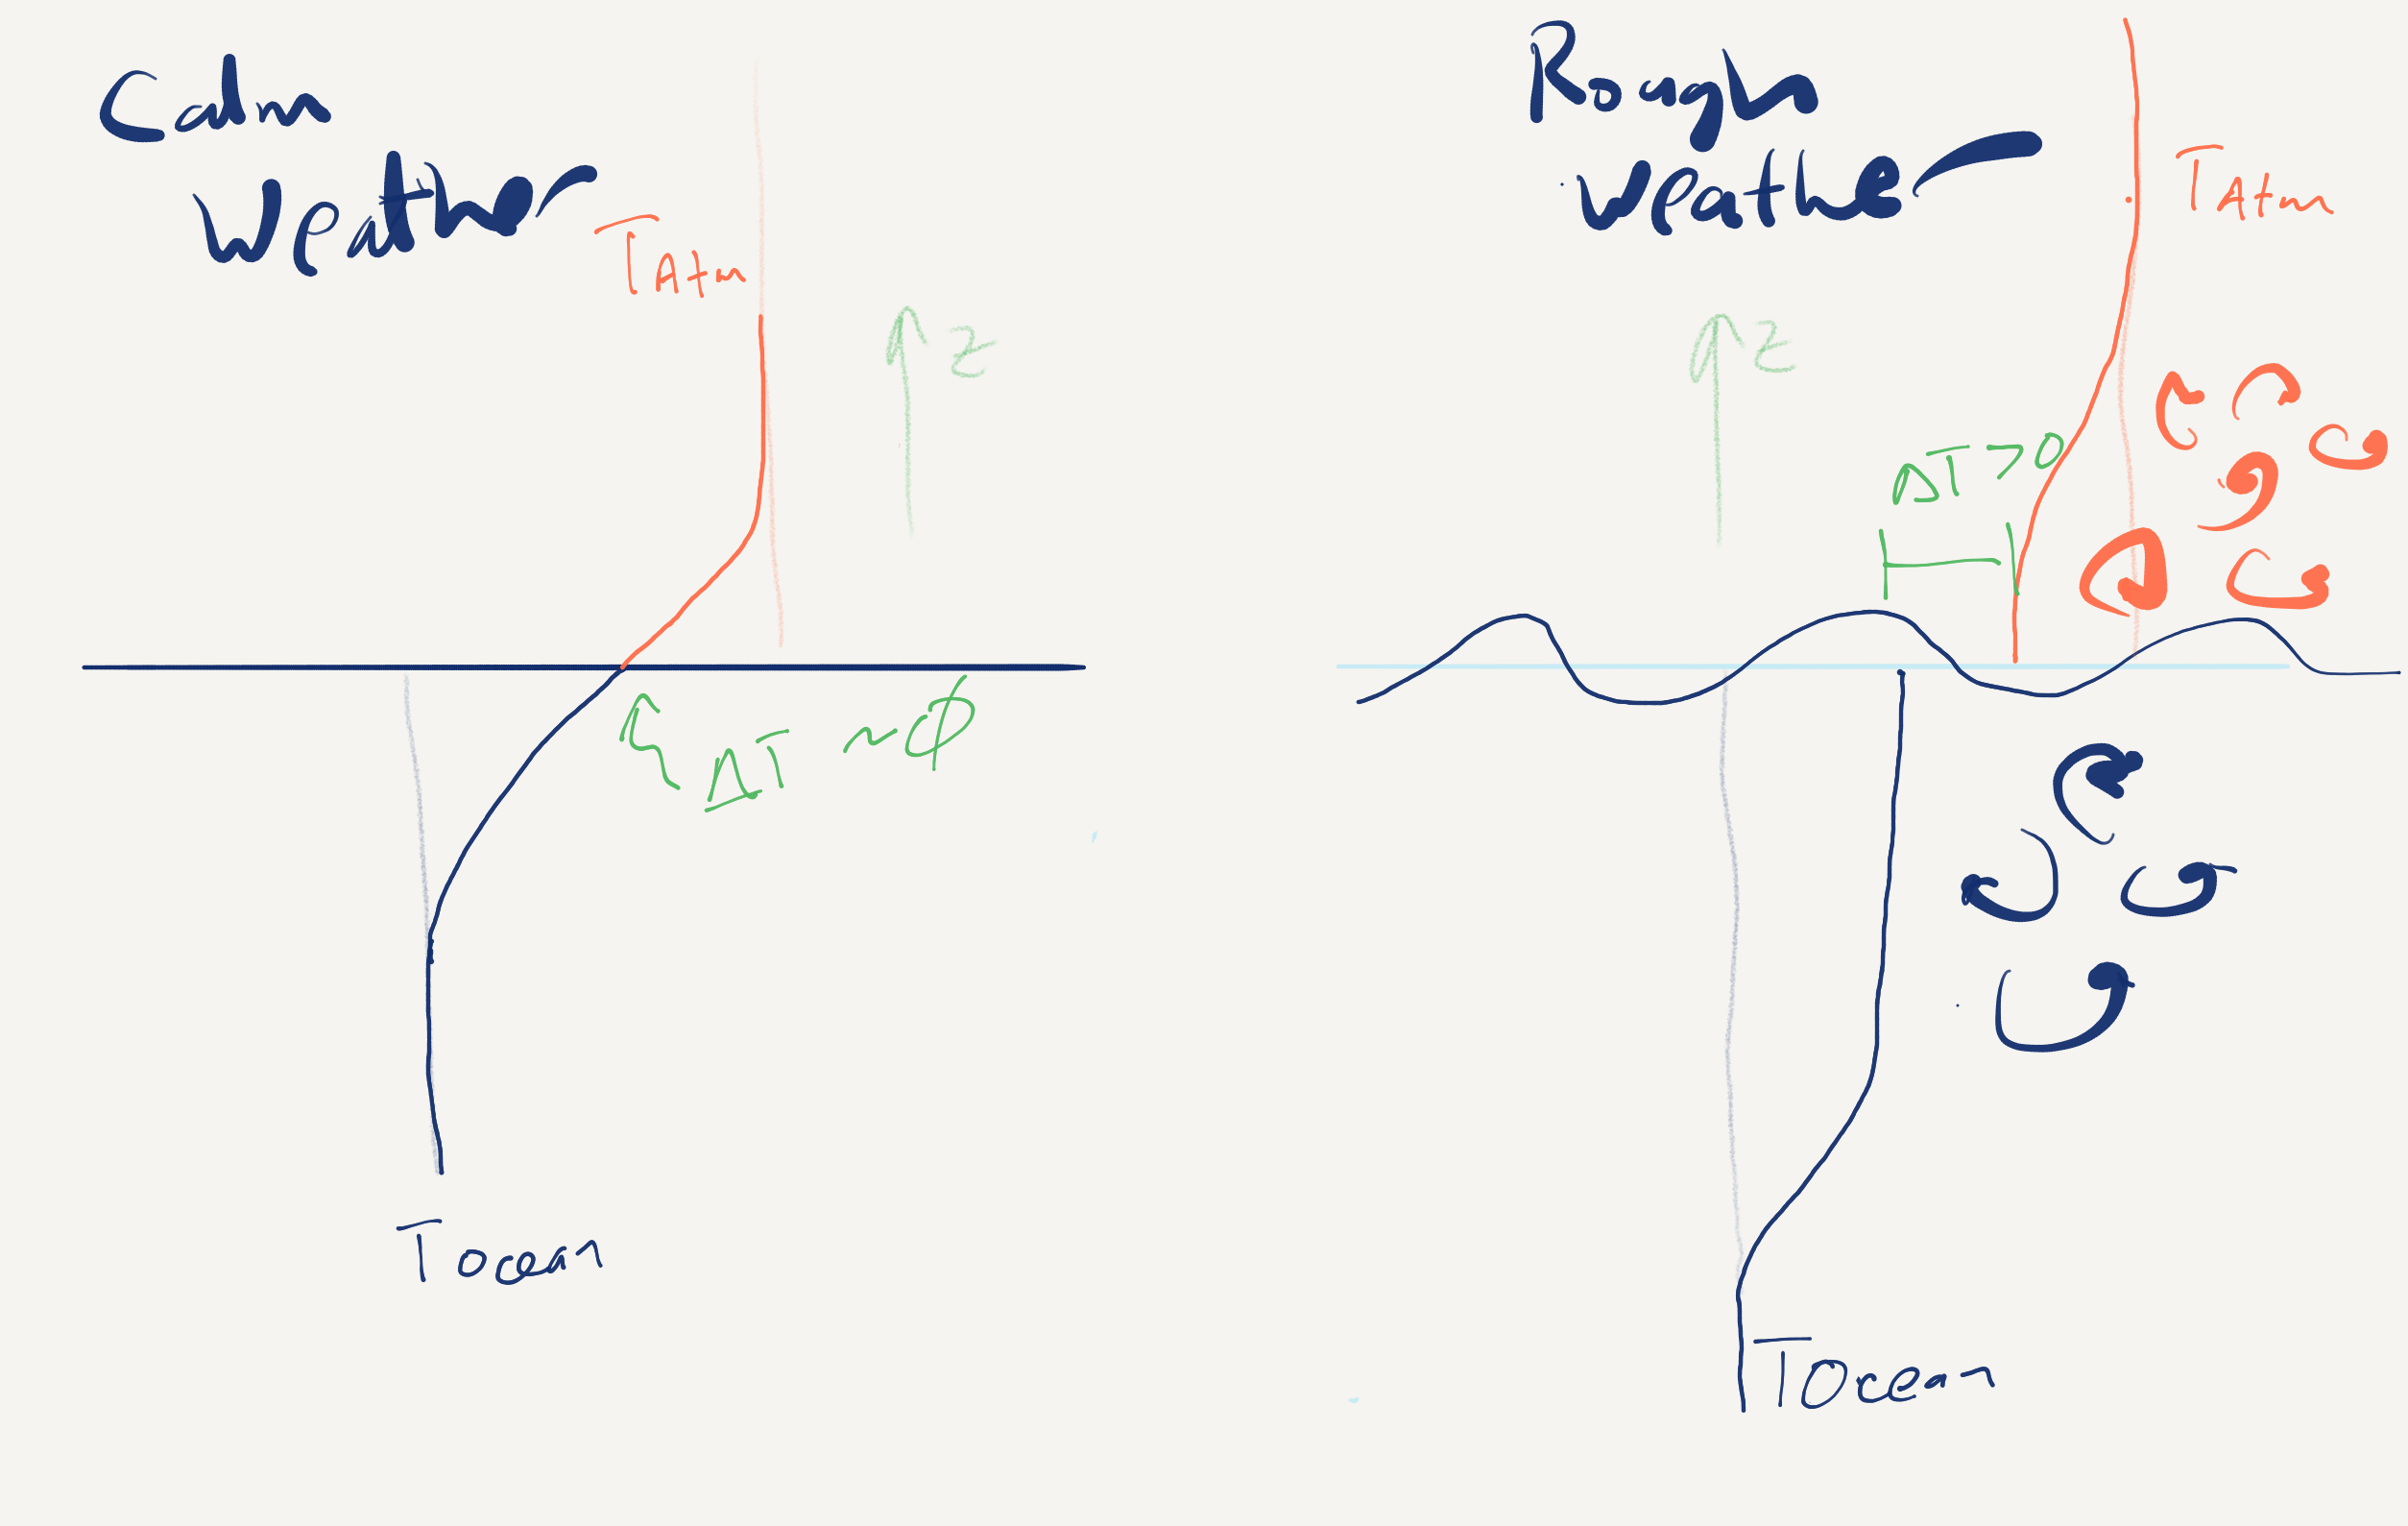 Calm
Weather
TAtm
z
ΔT ~ϕ
Tocean
Rough
Weather
TAtm
z
ΔT >0
TOcean